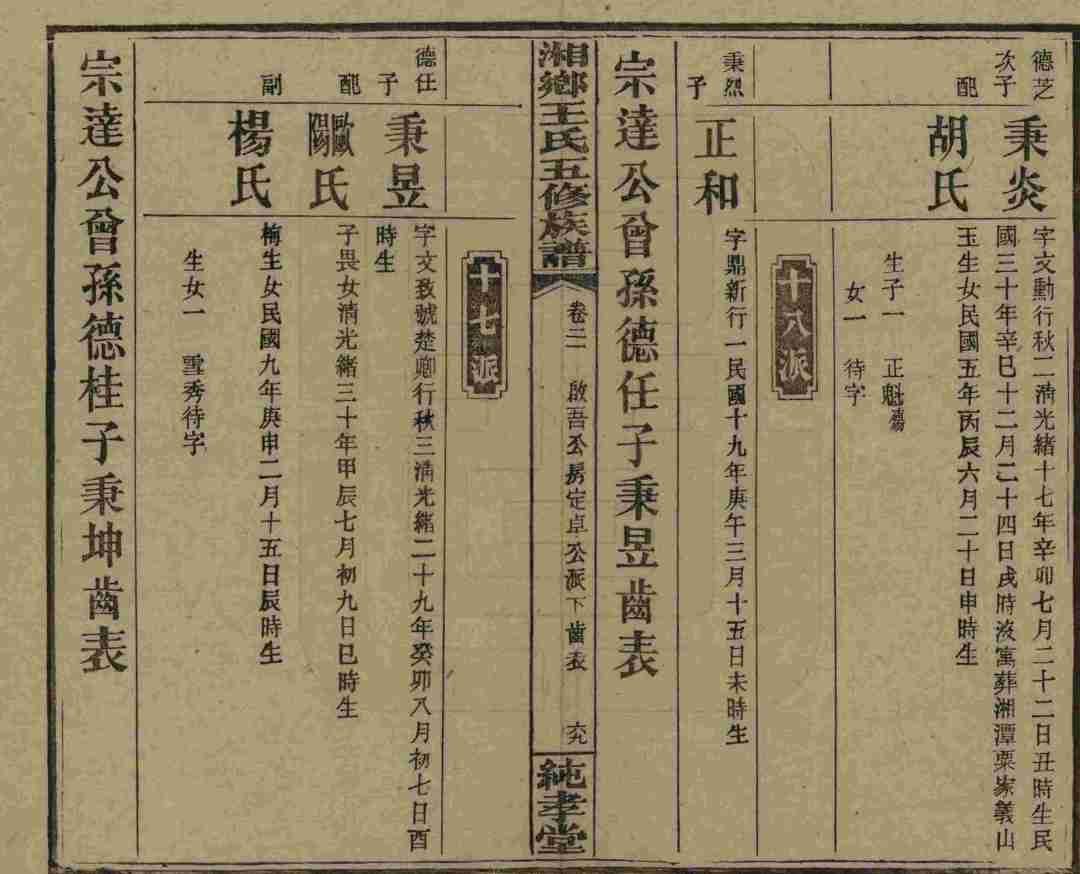 德芝
次子
秉炎
字文勳行秋二淸光緒十七年辛卯七月二十二日丑時生民
國三十年辛巳十二月二十四日戌時没寓葬湘潭粟家義山
配
胡氏
玉生女民國五年丙辰六月二十日申時生
生子一 正魁殤
女一 待字
十八派
秉烈
子
正和
字鼎新行一民國十九年庚午三月十五日未時生
宗達公曾孫德任子秉昱齒表
湘鄉王氏五修族譜
卷二
啟吾公房定卓公派下齒表
純孝堂
十七派
德任
子
秉昱
字文致號楚卿行秋三淸光緒二十九年癸卯八月初七日酉
時生
配
歐陽
氏
子畏女淸光緒三十年甲辰七月初九日巳時生
副
楊氏
梅生女民國九年庚申二月十五日辰時生
生女一 雪秀待字
宗達公曾孫德桂子秉坤齒表